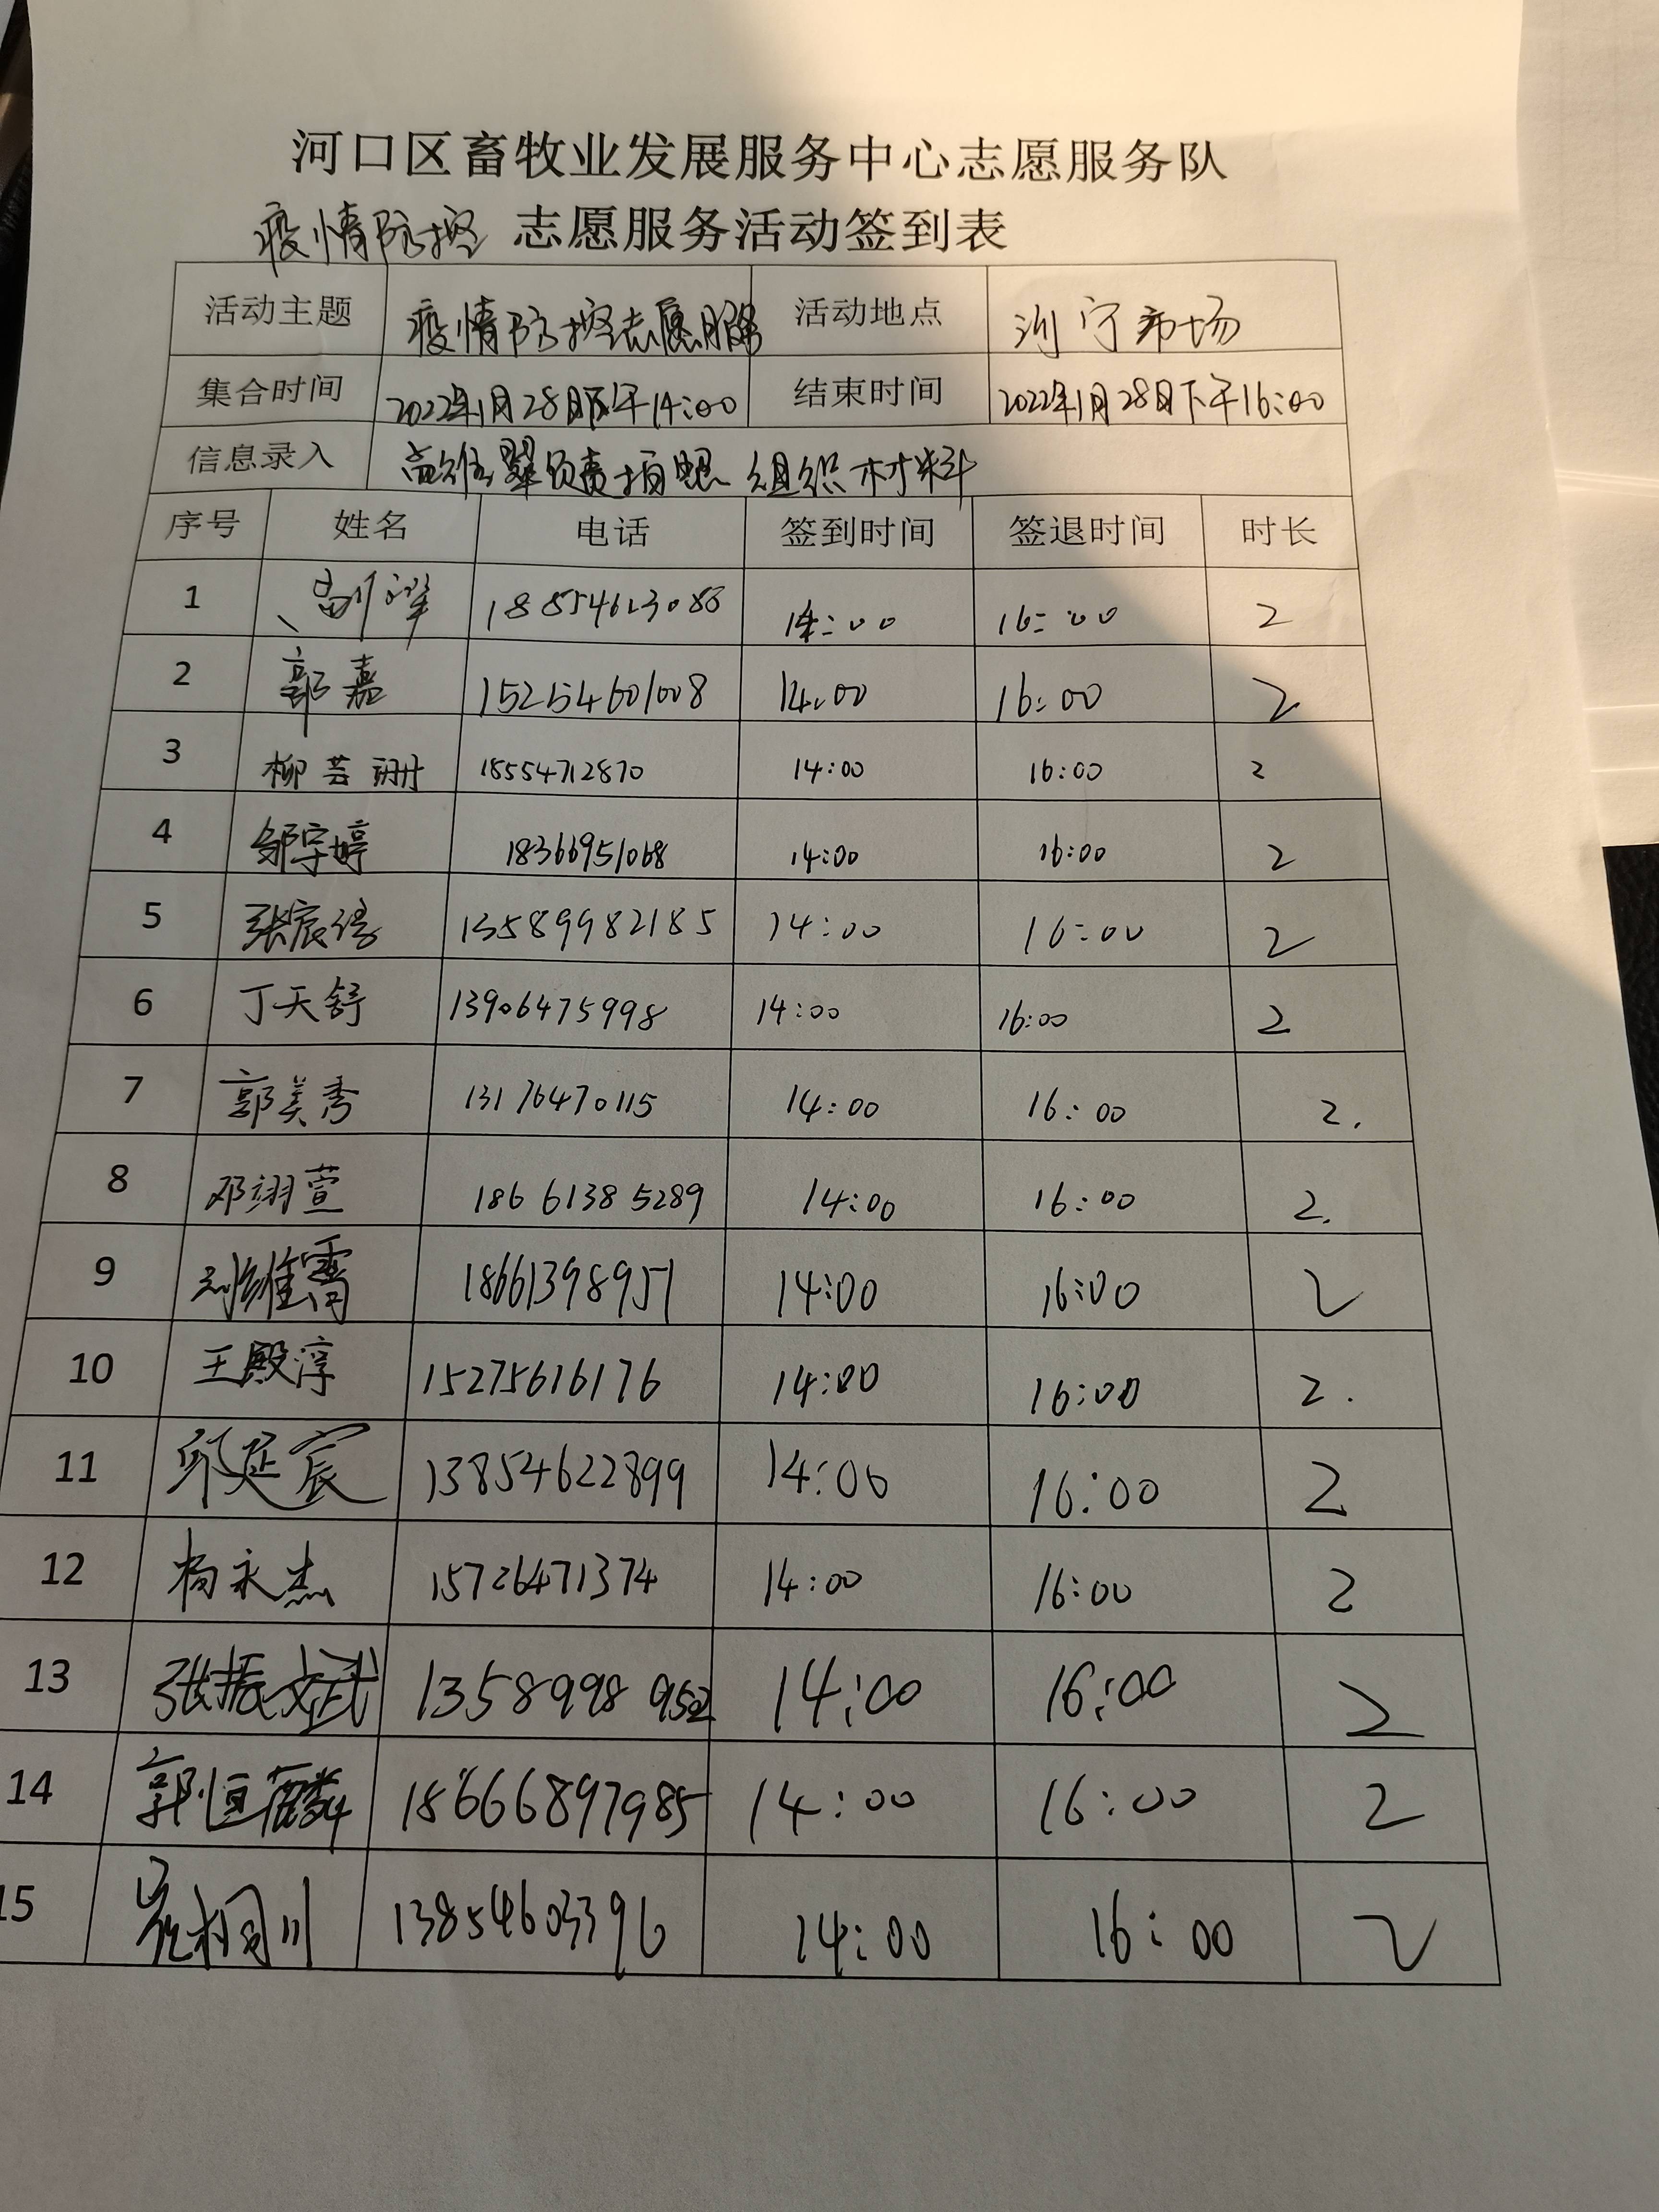 河口区畜牧业发展服务中心志愿服务队
疫情防控 志愿服务活动签到表
活动主题 疫情防控志愿服务 活动地点 济宁市场
集合时间 2022年1月28日下午14:00 结束时间 2022年1月28日下午16:00
信息录入 高维翠负责拍照 组织材料
序号 姓名 电话 签到时间 签退时间 时长
1 18854613088 14:00 16:00 2
2 郭嘉 15254601008 14:00 16:00 2
3 柳芸珊 18554712870 14:00 16:00 2
4 邹宇婷 18366951068 14:00 16:00 2
5 张宸 13589982185 14:00 16:00 2
6 丁天舒 13906475998 14:00 16:00 2
7 郭美秀 13176470115 14:00 16:00 2.
8 邓翊萱 186 6138 5289 14:00 16:00 2.
9 刘维霄 18661398951 14:00 16:00 2
10 王殿淳 15275616176 14:00 16:00 2.
11 延宸 13854622899 14:00 16:00 2
12 杨永杰 15726471374 14:00 16:00 2
13 张振斌 1358998 952 14:00 16:00 2
14 郭恒麟 18666897985 14:00 16:00 2
15 桐川 13854603396 14:00 16:00 2